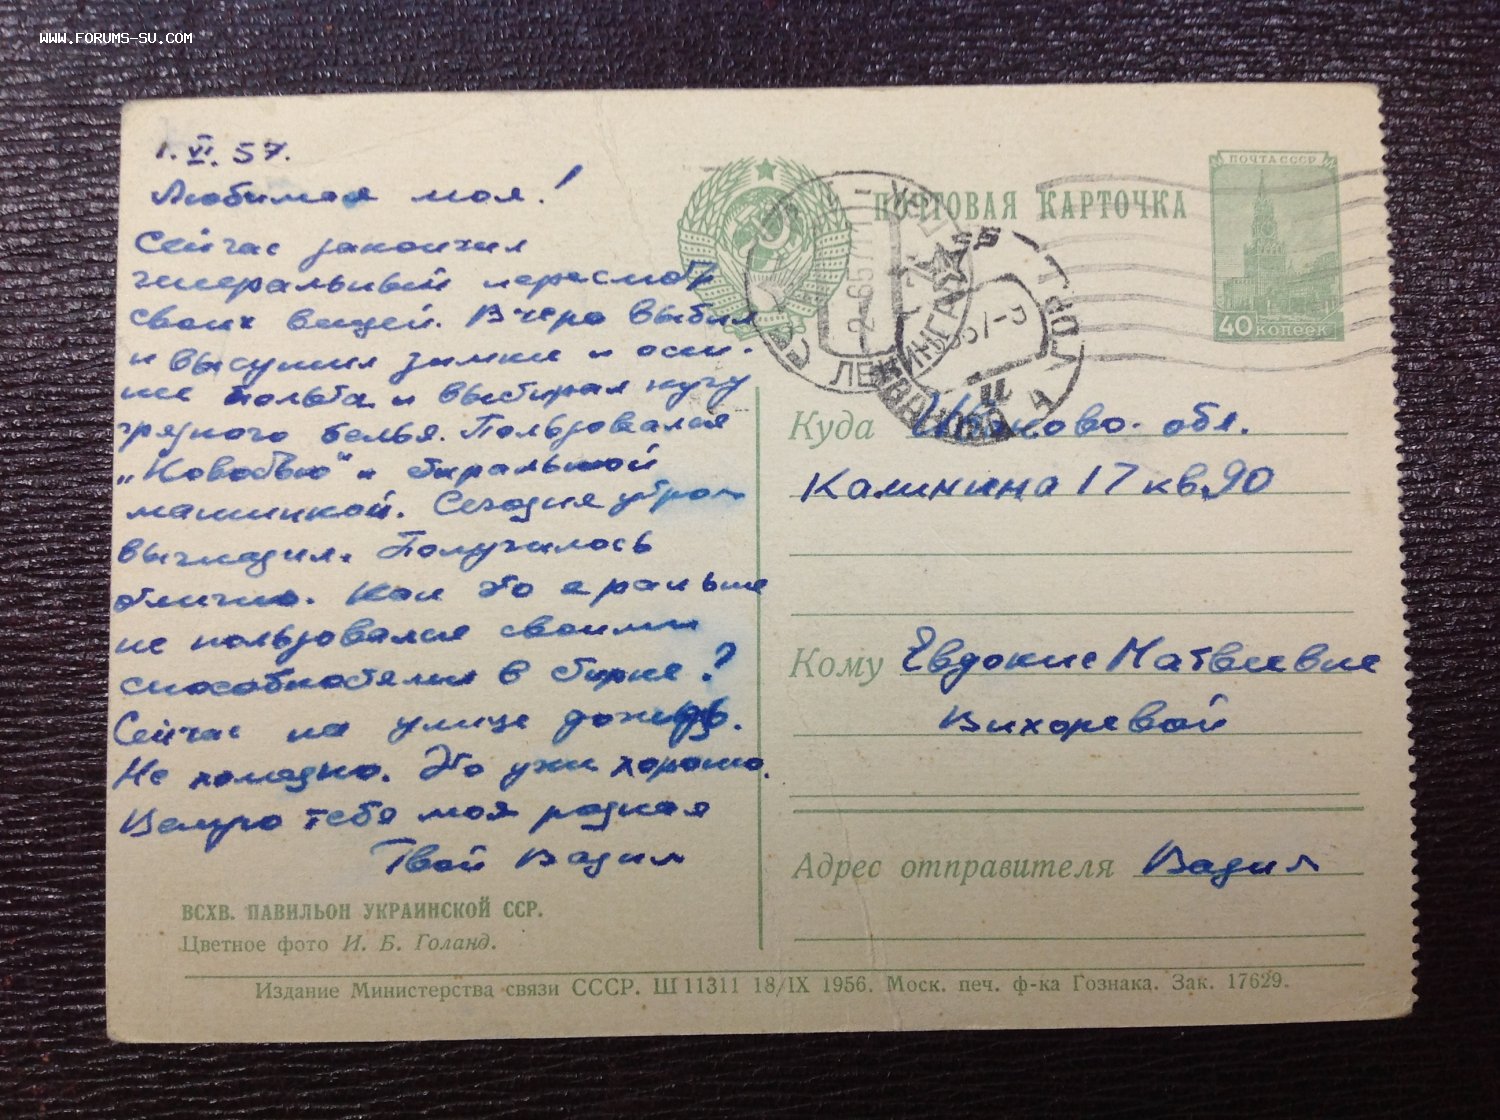 WWW.FORUMS-SU.COM
1.VI.57.
Любимая моя!
Сейчас закончил
генеральный пересмотр
своих вещей. Вчера выбил
и высушил зимнее и осен-
нее пальто и выстирал кучу
грязного белья. Пользовался
„Новостью“ и стиральной
машинкой. Сегодня утром
выгладил. Получилось
отлично. Как это я раньше
не пользовался своими
способностями в стирке?
Сейчас на улице дождь.
Не холодно. Это уже хорошо.
Целую тебя моя родная
Твой Вадим
ВСХВ. ПАВИЛЬОН УКРАИНСКОЙ ССР.
Цветное фото И. Б. Голанд.
ПОЧТОВАЯ КАРТОЧКА
ПОЧТА СССР
40 КОПЕЕК
ЛЕНИНГРАД
Куда Иваново. обл.
Калинина 17 кв. 90
Кому Евдокие Матвеевне
Вихоревой
Адрес отправителя Вадим
Издание Министерства связи СССР. Ш 11311 18/IX 1956. Моск. печ. ф-ка Гознака. Зак. 17629.